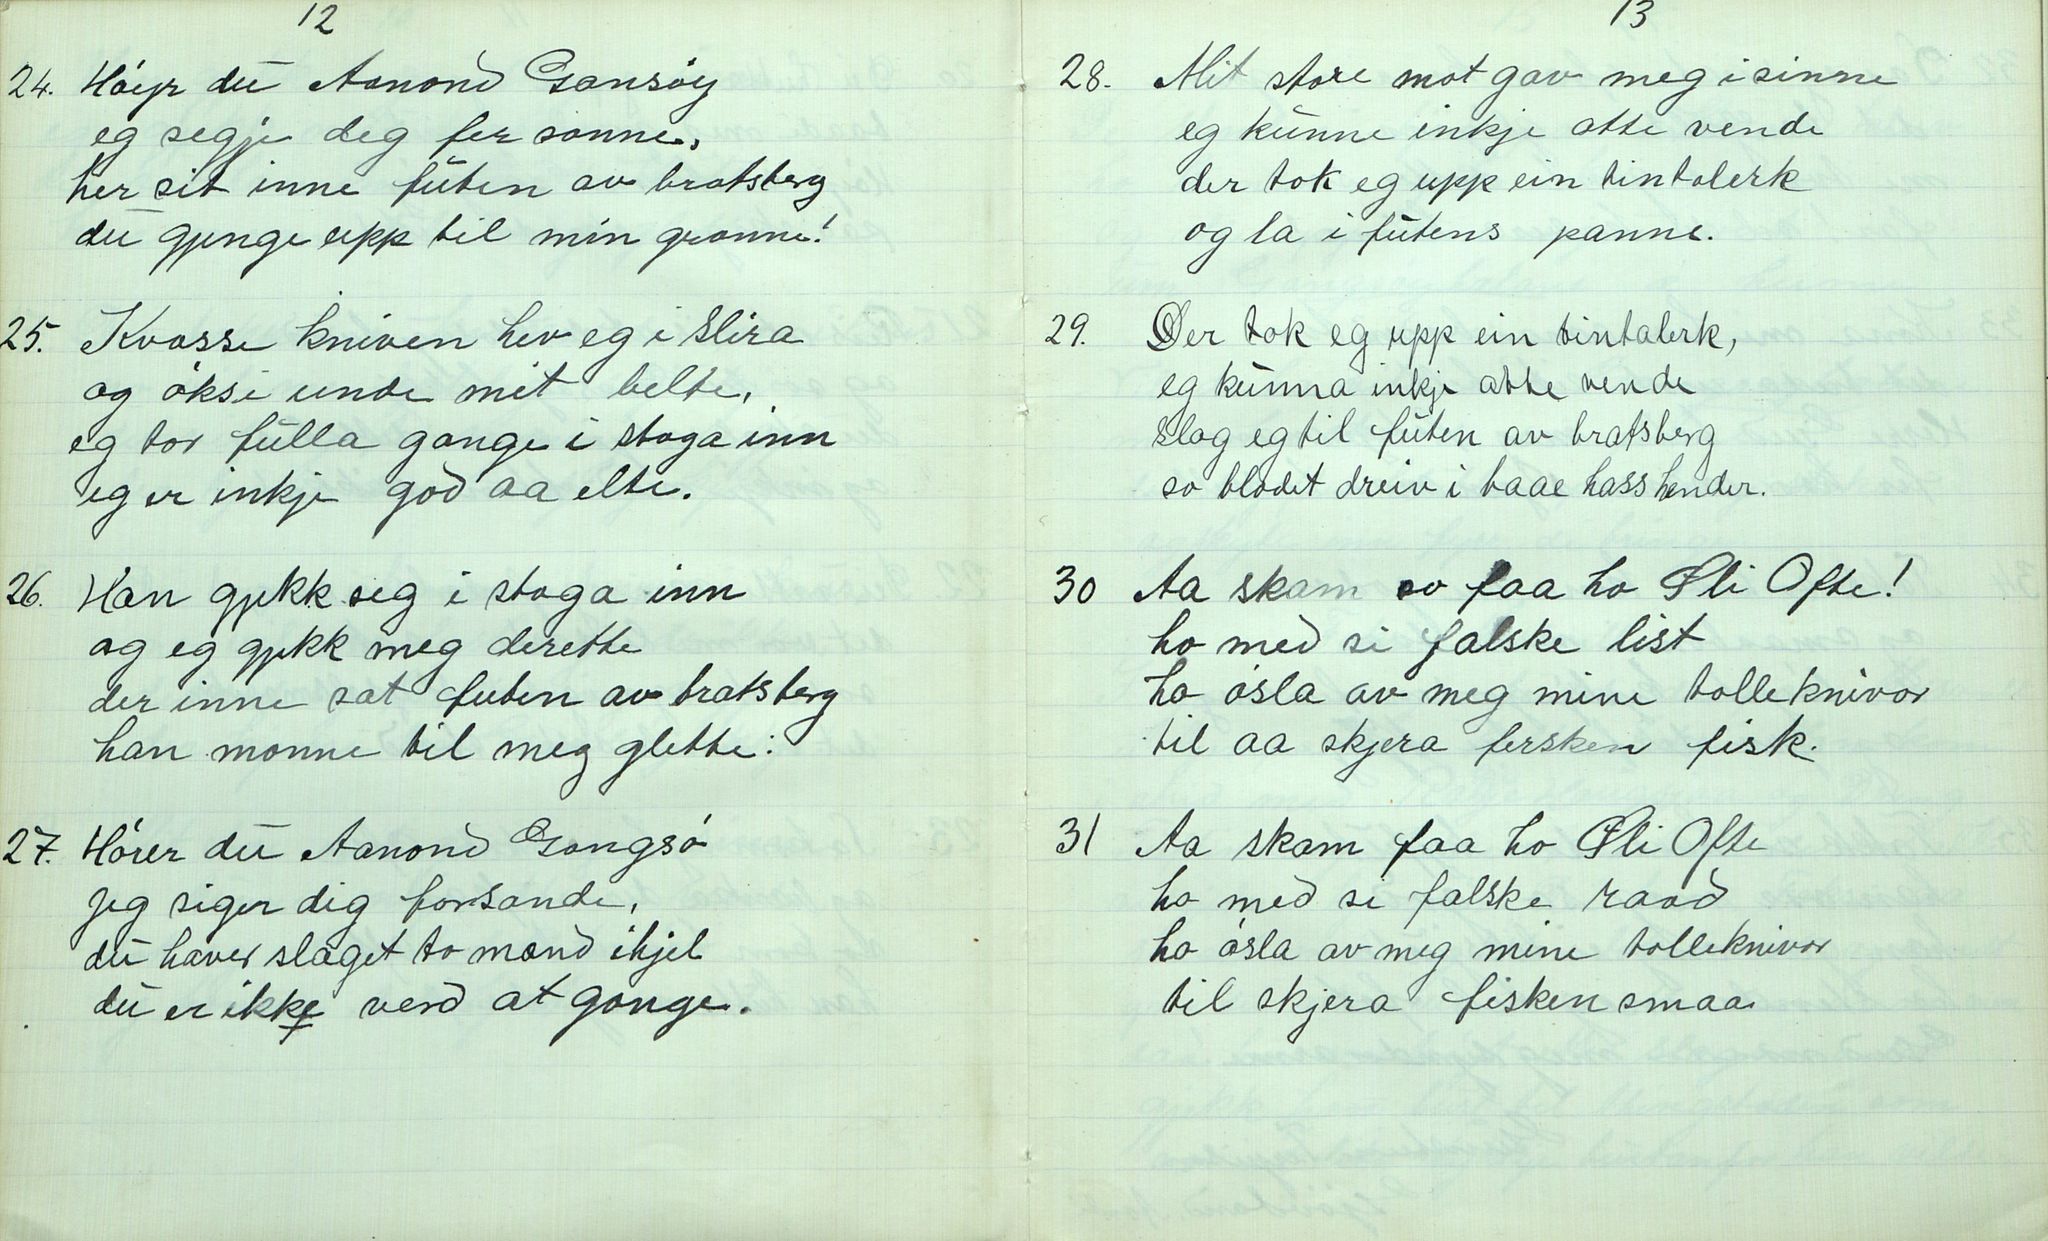 12
24. Höyr du Aanond Gansöy
eg segje deg fer sanne,
her sit inne futen av bratsberg
du gjenge upp til min granne!
25. Kvasse kniven hev eg i slira
og öksi unde mit belte,
eg tor fulla gange i stoga inn
eg er inkje god aa elte.
26. Han gjekk seg i stoga inn
og eg gjekk meg derette
der inne sat futen av bratsberg
han monne til meg glette:
27. Hörer du Aanond Gangsö
jeg siger dig forsande,
du haver slaget to mand ihjel
du er ikke verd at gange.
13
28. Mit store mot gav meg i sinne
eg kunne inkje atte vende
der tok eg upp ein tintalerk
og la i futens panne.
29. Der tok eg upp ein tintalerk,
eg kunna inkje atte vende
slog eg til futen av bratsberg
so blodet dreiv i baae hass hender.
30 Aa skam so faa ho Öli Ofte!
ho med si falske list
ho ösla av meg mine tolleknivar
til aa skjera fersken fisk.
31 Aa skam faa ho Öli Ofte
ho med si falske raad
ho ösla av meg mine tolleknivar
til skjera fisken smaa